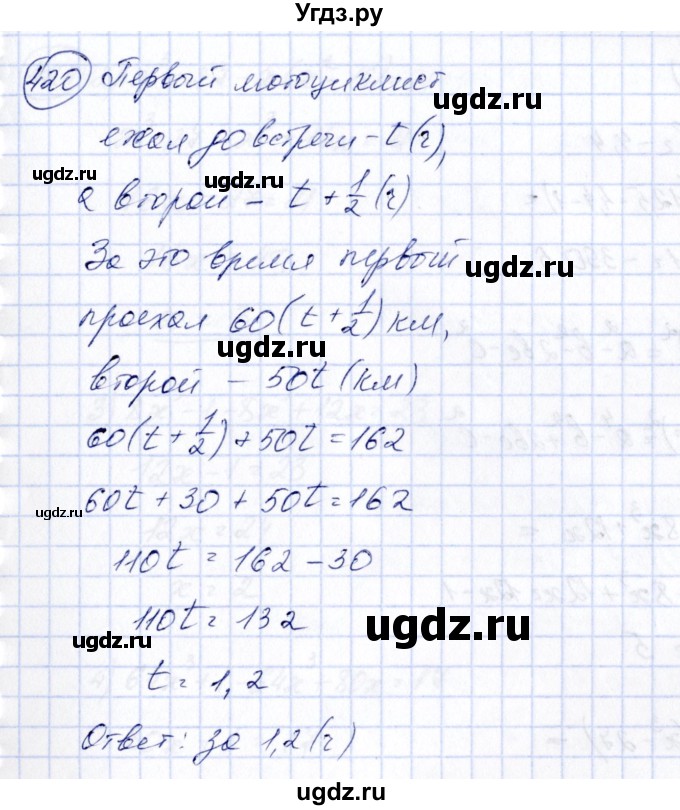 Угдз.ру
420 Первый мотоциклист
ugdz.ru
ехал до встречи - t (ч),
ugdz.ru ugdz.ru
а второй - t + 1/2 (ч)
За это время первый
ugdz.ru
проехал 60(t + 1/2) км,
ugdz.ru
второй - 50t (км)
60(t + 1/2) + 50t = 162
60t + 30 + 50t = 162
ugdz.ru
110t = 162 - 30
110t = 132
ugdz.ru ugdz.ru
t = 1,2
Ответ: за 1,2 (ч)
ugdz.ru
ugdz.ru